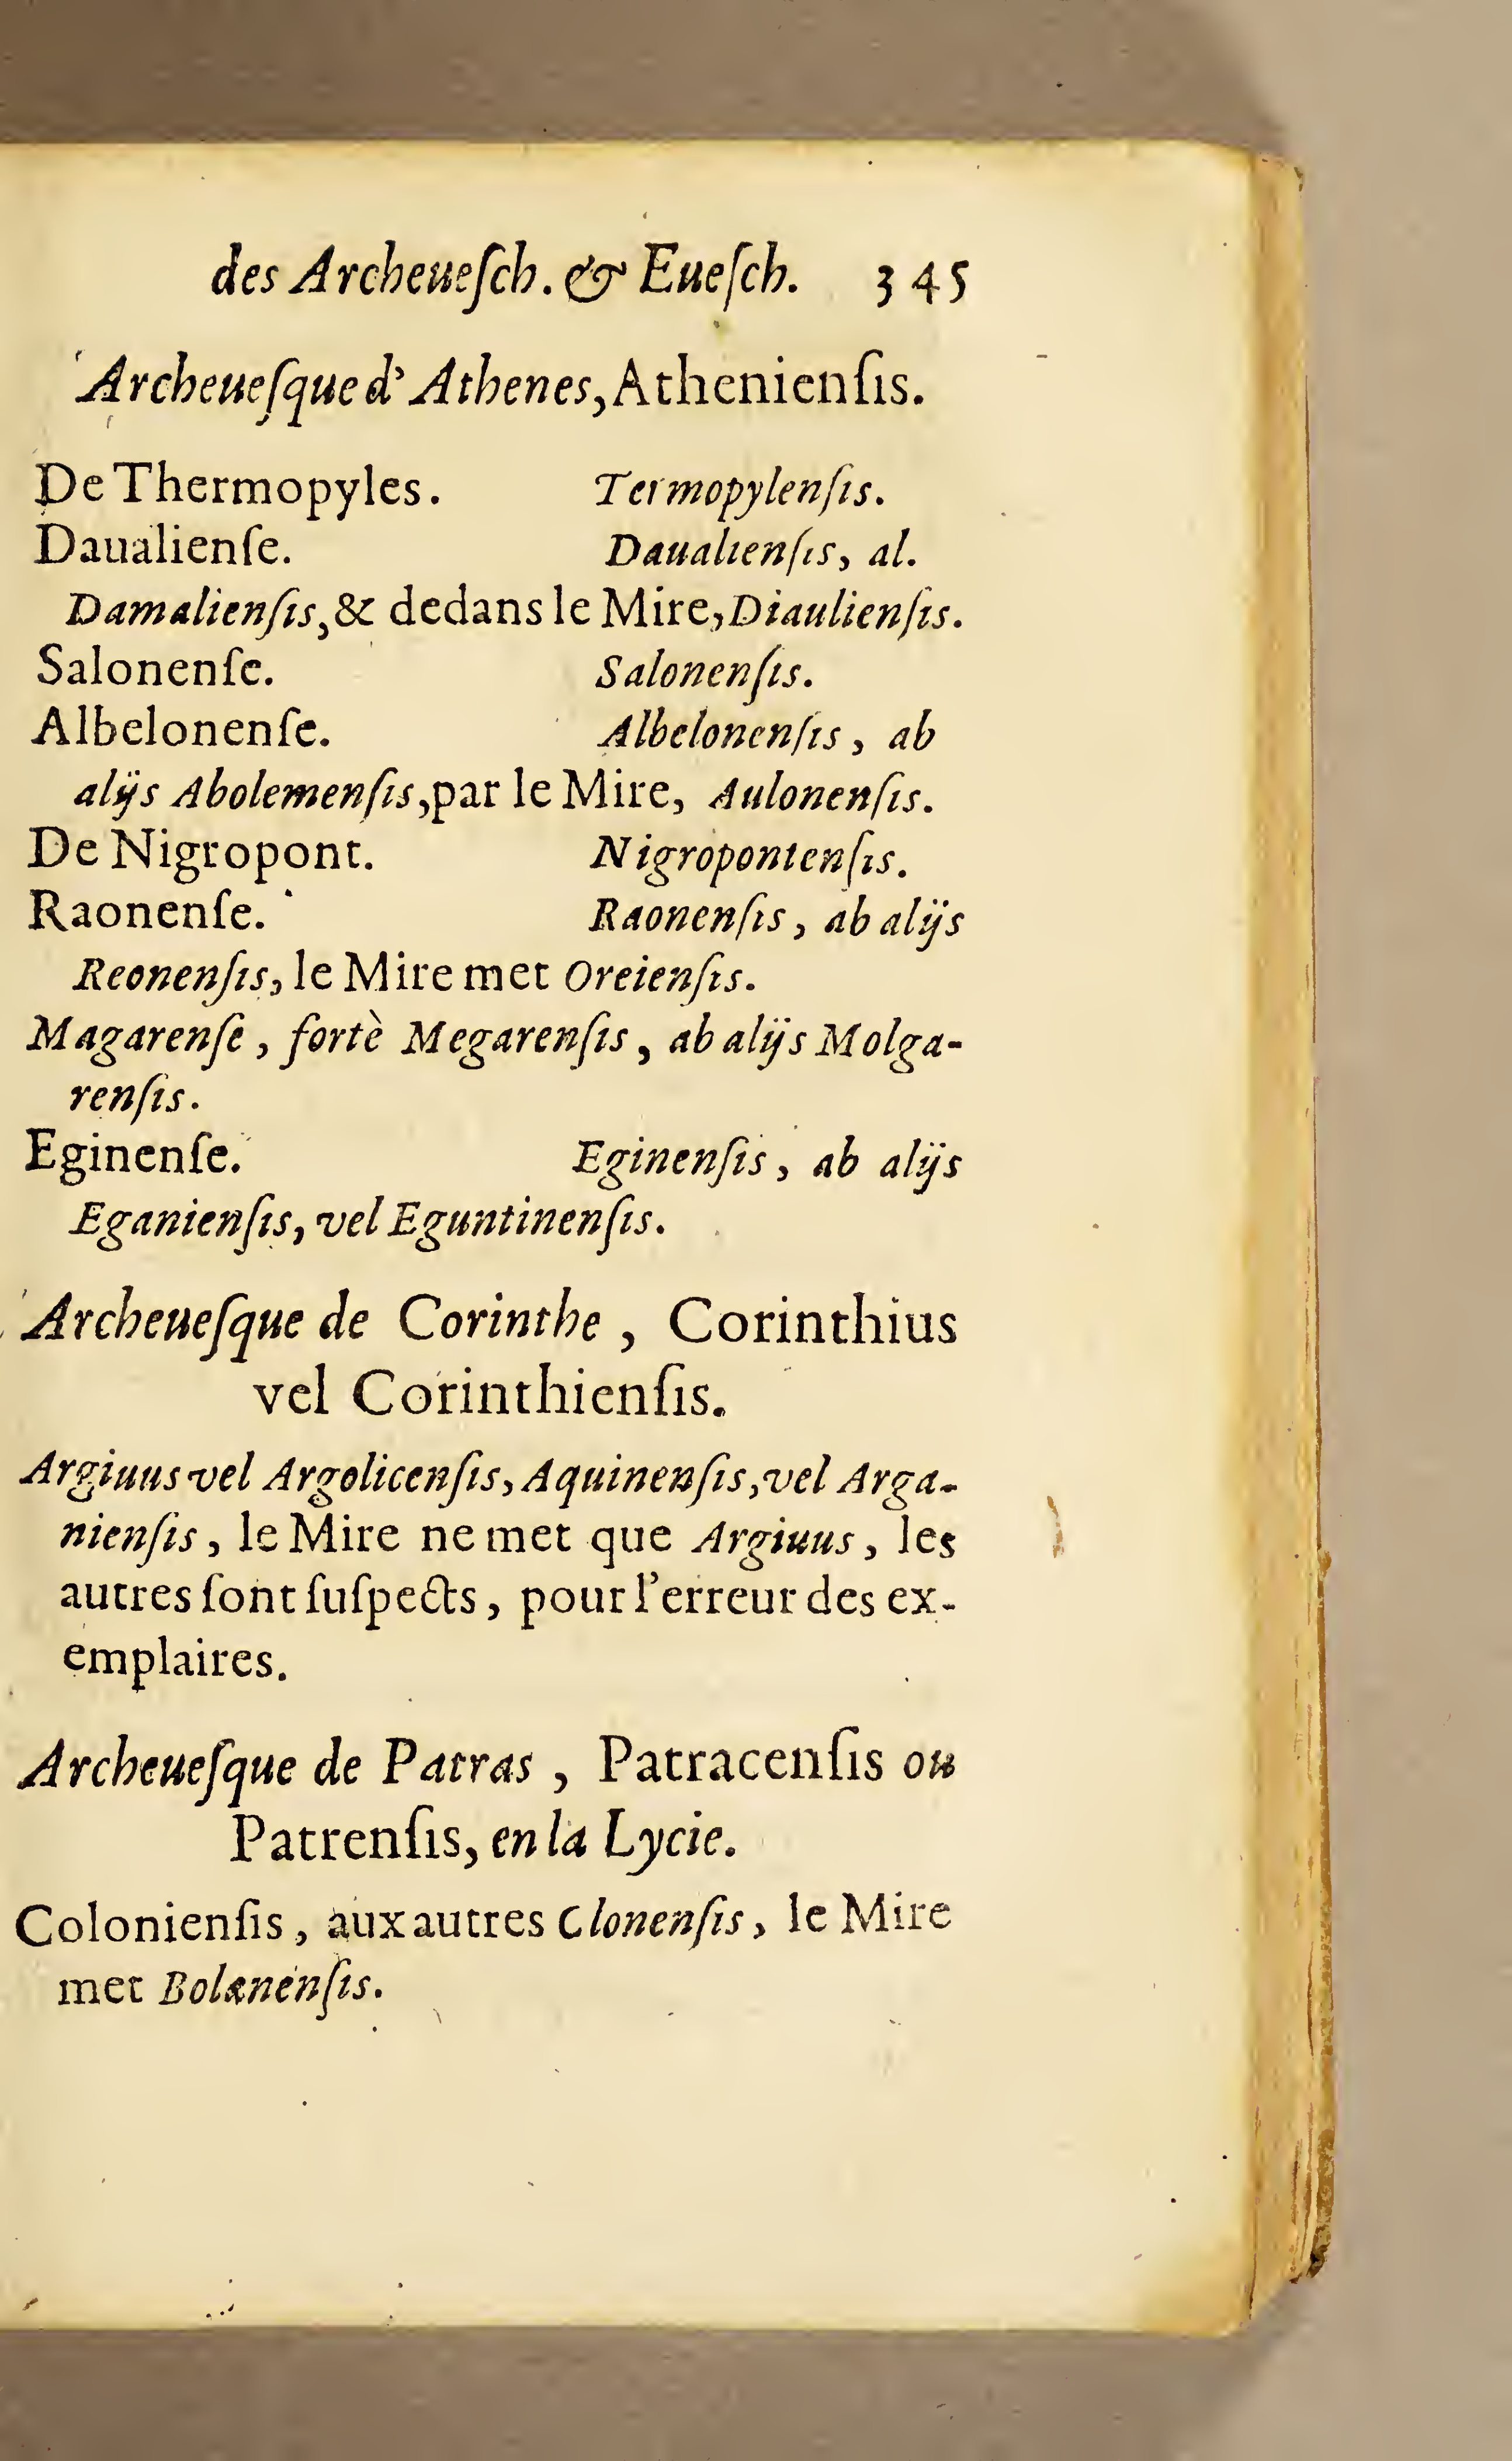 des Archeueſch. & Eueſch. 345
Archeueſque d' Athenes, Athenienſis.
De Thermopyles. Termopylenſis.
Daualienſe. Daualienſis, al.
Damalienſis, & dedans le Mire, Diaulienſis.
Salonenſe. Salonenſis.
Albelonenſe. Albelonenſis, ab
alijs Abolemenſis, par le Mire, Aulonenſis.
De Nigropont. Nigropontenſis.
Raonenſe. Raonenſis, ab alijs
Reonenſis, le Mire met Oreienſis.
Magarenſe, fortè Megarenſis, ab alijs Molga-
renſis.
Eginenſe. Eginenſis, ab alijs
Eganienſis, vel Eguntinenſis.
Archeueſque de Corinthe, Corinthius
vel Corinthienſis.
Argiuus vel Argolicenſis, Aquinenſis, vel Arga-
nienſis, le Mire ne met que Argiuus, les
autres ſont ſuſpects, pour l'erreur des ex-
emplaires.
Archeueſque de Patras, Patracenſis ou
Patrenſis, en la Lycie.
Colonienſis, aux autres Clonenſis, le Mire
met Bolanenſis.